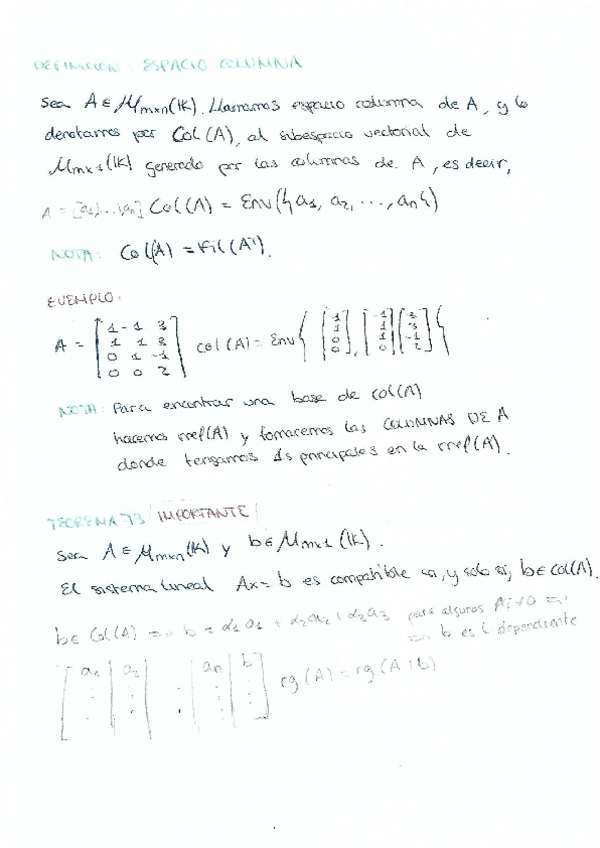 DEFINICIÓN: ESPACIO COLUMNA
Sea A ∈ Mmxn(IK). Llamamos espacio columna de A, y lo
denotamos por Col(A), al subespacio vectorial de
Mmx1(IK) generado por las columnas de A, es decir,
A = [a1|...|an] Col(A) = Env({a1, a2, ..., an})
NOTA: Col(A) = Fil(Aᵀ).
EJEMPLO:
A = [1 -1 3; 1 1 3; 0 1 -1; 0 0 2] Col(A) = Env{[1 1 0 0], [-1 1 1 0] [3 3 -1 2]}
NOTA: Para encontrar una base de Col(A)
hacemos rref(A) y tomaremos las COLUMNAS DE A
donde tengamos 1s principales en la rref(A).
TEOREMA 73 IMPORTANTE
Sea A ∈ Mmxn(IK) y b ∈ Mmx1(IK).
El sistema lineal Ax = b es compatible si, y solo si, b ∈ Col(A).
b ∈ Col(A) => b = α1a1 + α2a2 + α3a3 para algunos
=> b es l. dependiente
[a1 | a2 | | an | b] rg(A) = rg(A|b)